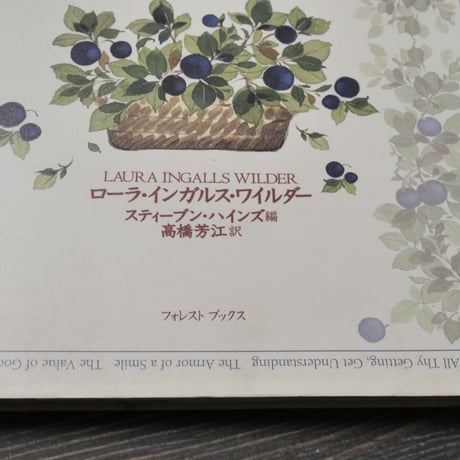 LAURA INGALLS WILDER
ローラ・インガルス・ワイルダー
スティーブン・ハインズ編
高橋芳江訳
フォレスト ブックス
All Thy Getting, Get Understanding   The Armor of a Smile   The Value of